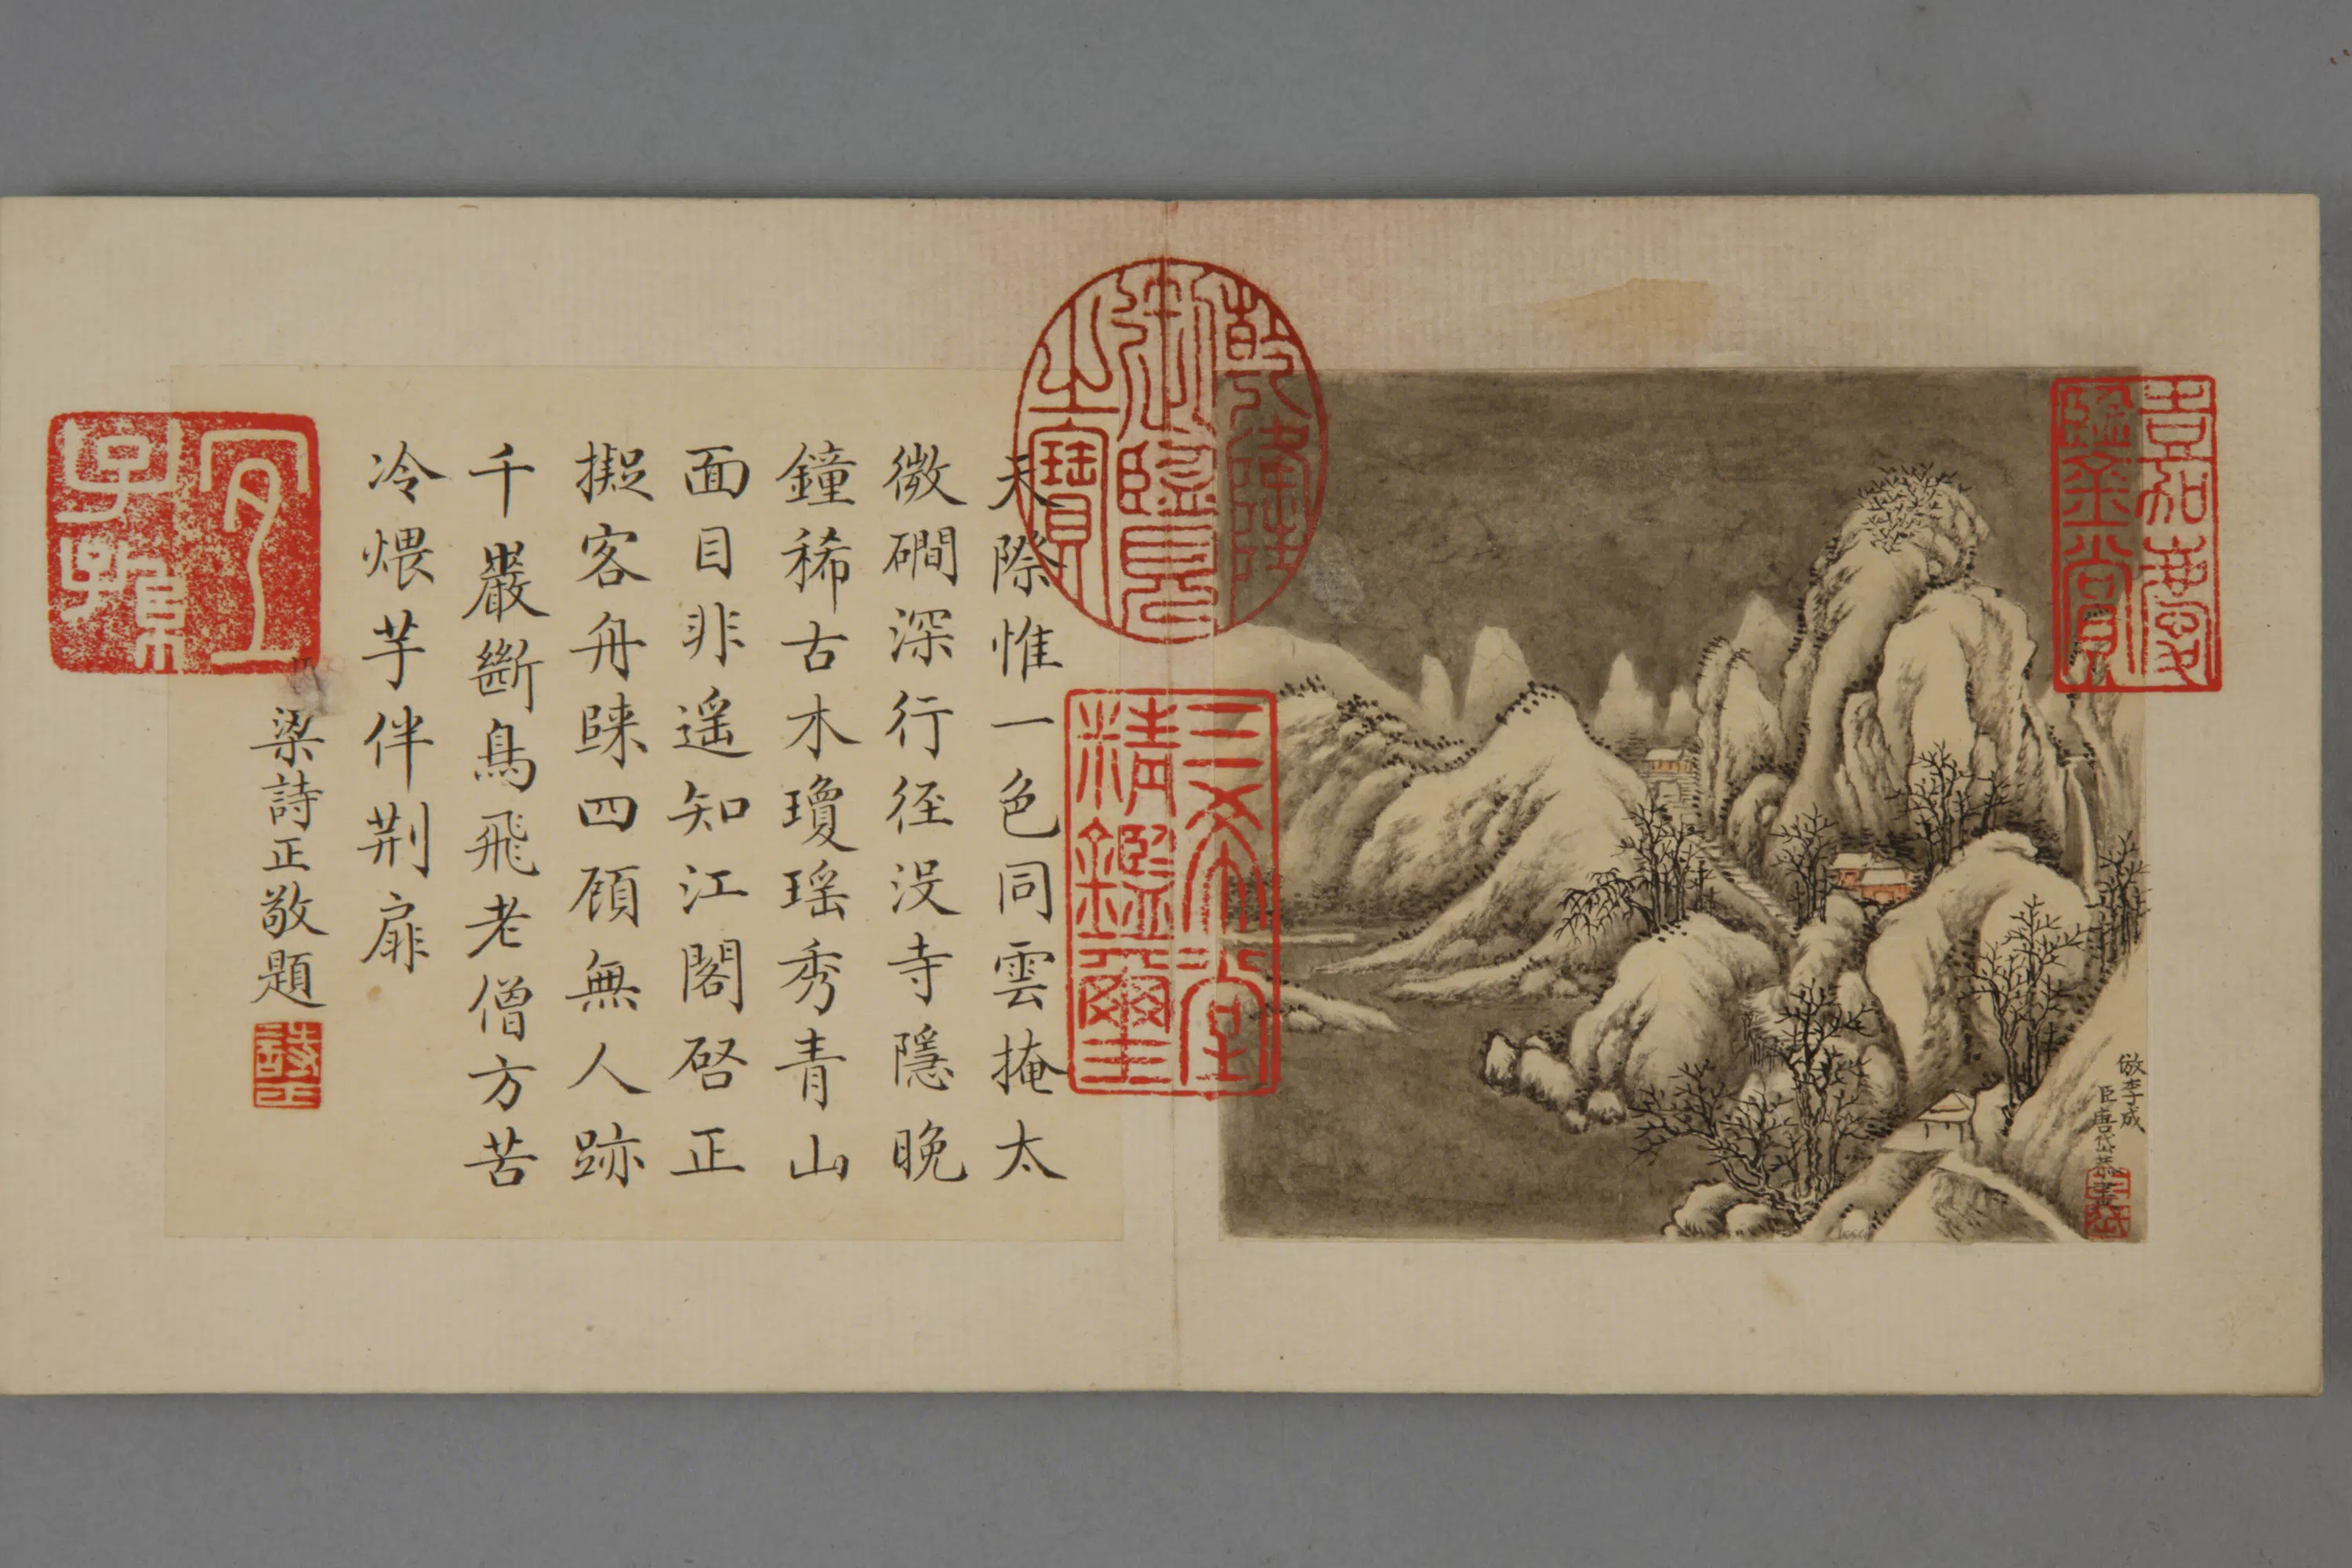 嘉慶
鑑賞
倣李成
臣唐岱恭畫
乾隆
御覽
之寶
三希堂
精鑑璽
天際惟一色同雲掩太
微磵深行径没寺隱晚
鐘稀古木瓊瑤秀青山
面目非遥知江閣啓正
擬客舟歸四顧無人跡
千巖斷鳥飛老僧方苦
冷煨芋伴荆扉
梁詩正敬題
詩正
宜
子孫